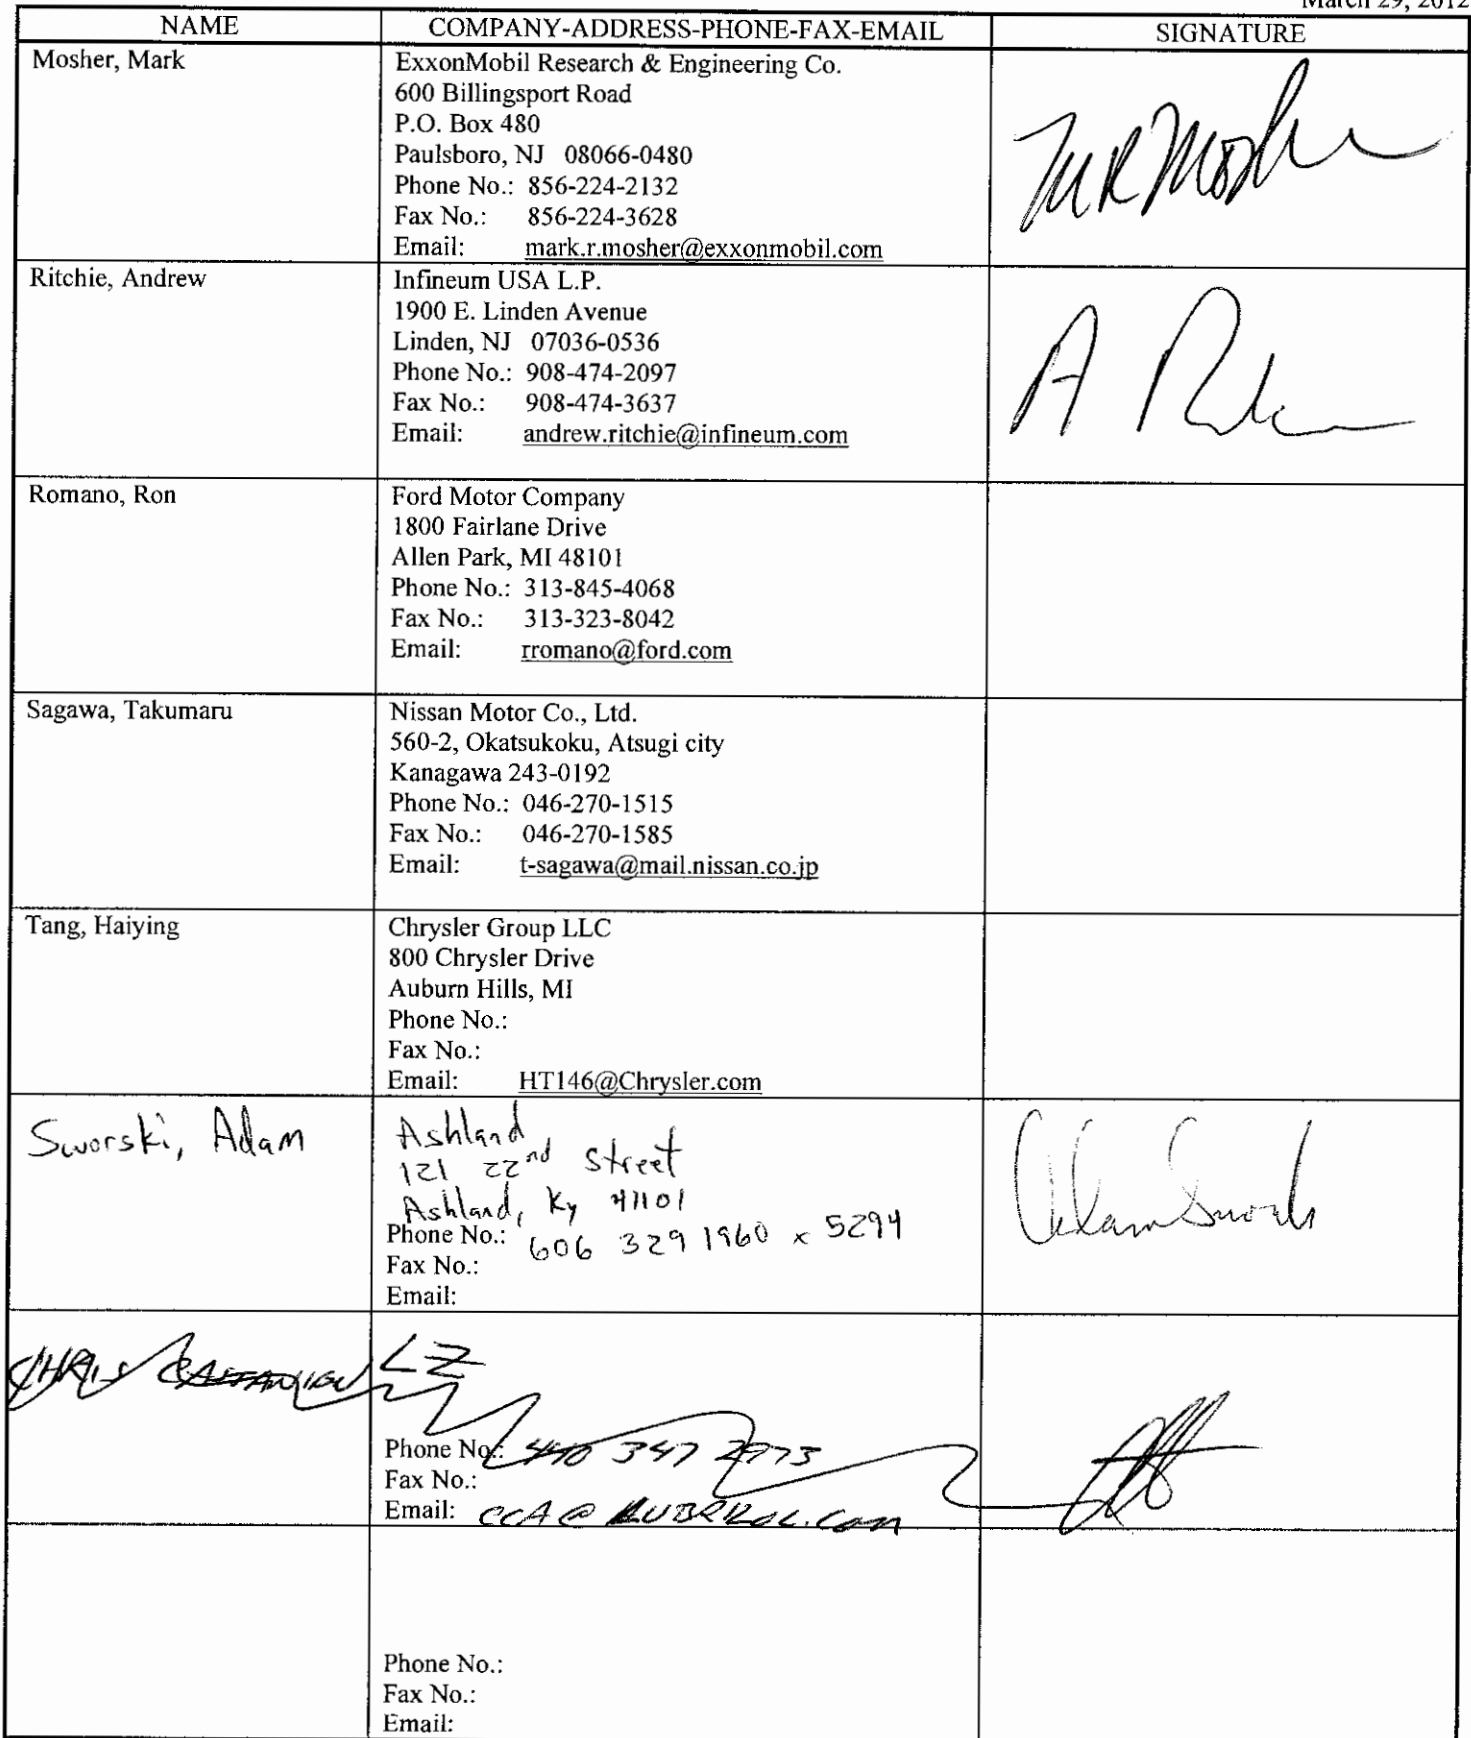 March 29, 2012
NAME
COMPANY-ADDRESS-PHONE-FAX-EMAIL
SIGNATURE
Mosher, Mark
ExxonMobil Research & Engineering Co.
600 Billingsport Road
P.O. Box 480
Paulsboro, NJ 08066-0480
Phone No.: 856-224-2132
Fax No.: 856-224-3628
Email: mark.r.mosher@exxonmobil.com
MRMosher
Ritchie, Andrew
Infineum USA L.P.
1900 E. Linden Avenue
Linden, NJ 07036-0536
Phone No.: 908-474-2097
Fax No.: 908-474-3637
Email: andrew.ritchie@infineum.com
A
Romano, Ron
Ford Motor Company
1800 Fairlane Drive
Allen Park, MI 48101
Phone No.: 313-845-4068
Fax No.: 313-323-8042
Email: rromano@ford.com
Sagawa, Takumaru
Nissan Motor Co., Ltd.
560-2, Okatsukoku, Atsugi city
Kanagawa 243-0192
Phone No.: 046-270-1515
Fax No.: 046-270-1585
Email: t-sagawa@mail.nissan.co.jp
Tang, Haiying
Chrysler Group LLC
800 Chrysler Drive
Auburn Hills, MI
Phone No.:
Fax No.:
Email: HT146@Chrysler.com
Sworski, Adam
Ashland
121 22nd Street
Ashland, Ky 41101
Phone No.: 606 329 1960 x 5294
Fax No.:
Email:
Adam Sworski
CHRIS CASTANIEN
LZ
Phone No.: 440 347 2973
Fax No.:
Email: CCA@LUBRIZOL.COM
Phone No.:
Fax No.:
Email: